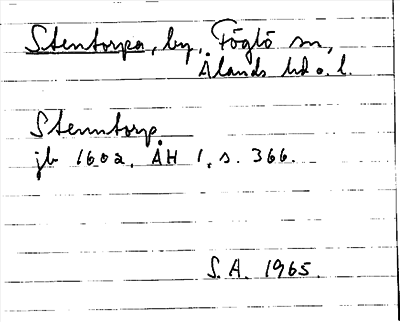 Stentorpa, by, Föglö sn,
Ålands hd o. l.
Stenntorp
jb 1602, ÅH 1, s. 366.
S. A. 1965.